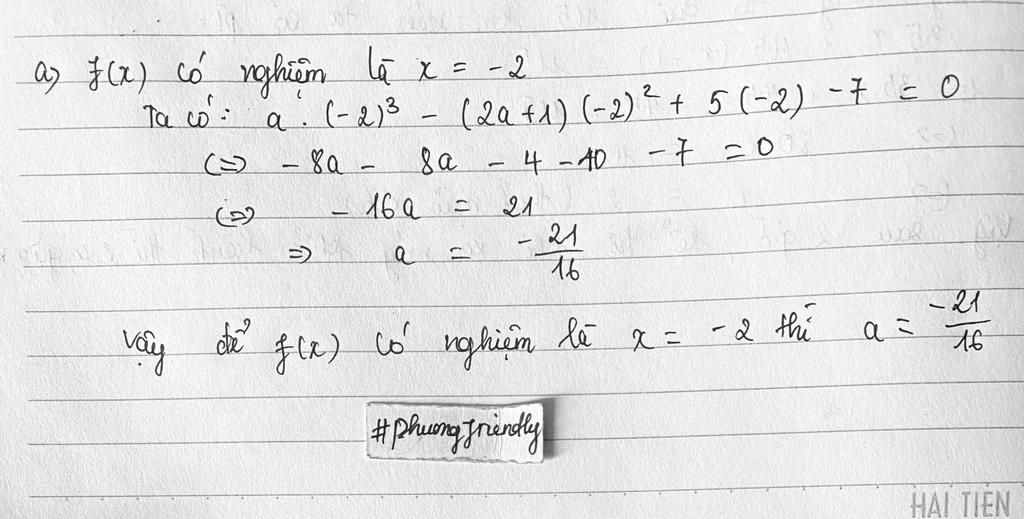 a) f(x) có nghiệm là x = -2
Ta có: a . (-2)³ - (2a+1) (-2)² + 5 (-2) - 7 = 0
(=) - 8a - 8a - 4 - 10 - 7 = 0
(=) - 16a = 21
=) a = -21/16
Vậy để f(x) có nghiệm là x = -2 thì a = -21/16
#phuongfriendly
HẢI TIẾN